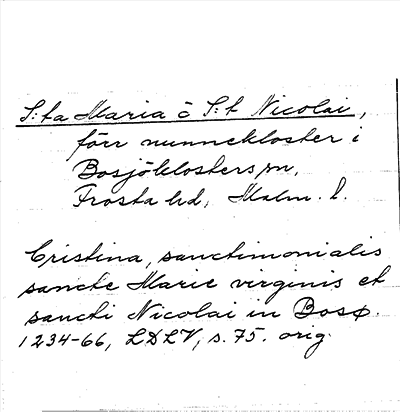 S:ta Maria o S:t Nicolai,
förr nunnekloster i
Bosjöklosters sn,
Frosta hd, Malm. l.
Cristina, sanctimonialis
sancte Marie virginis et
sancti Nicolai in Bosø.
1234-66, LDLV, s. 75. orig.